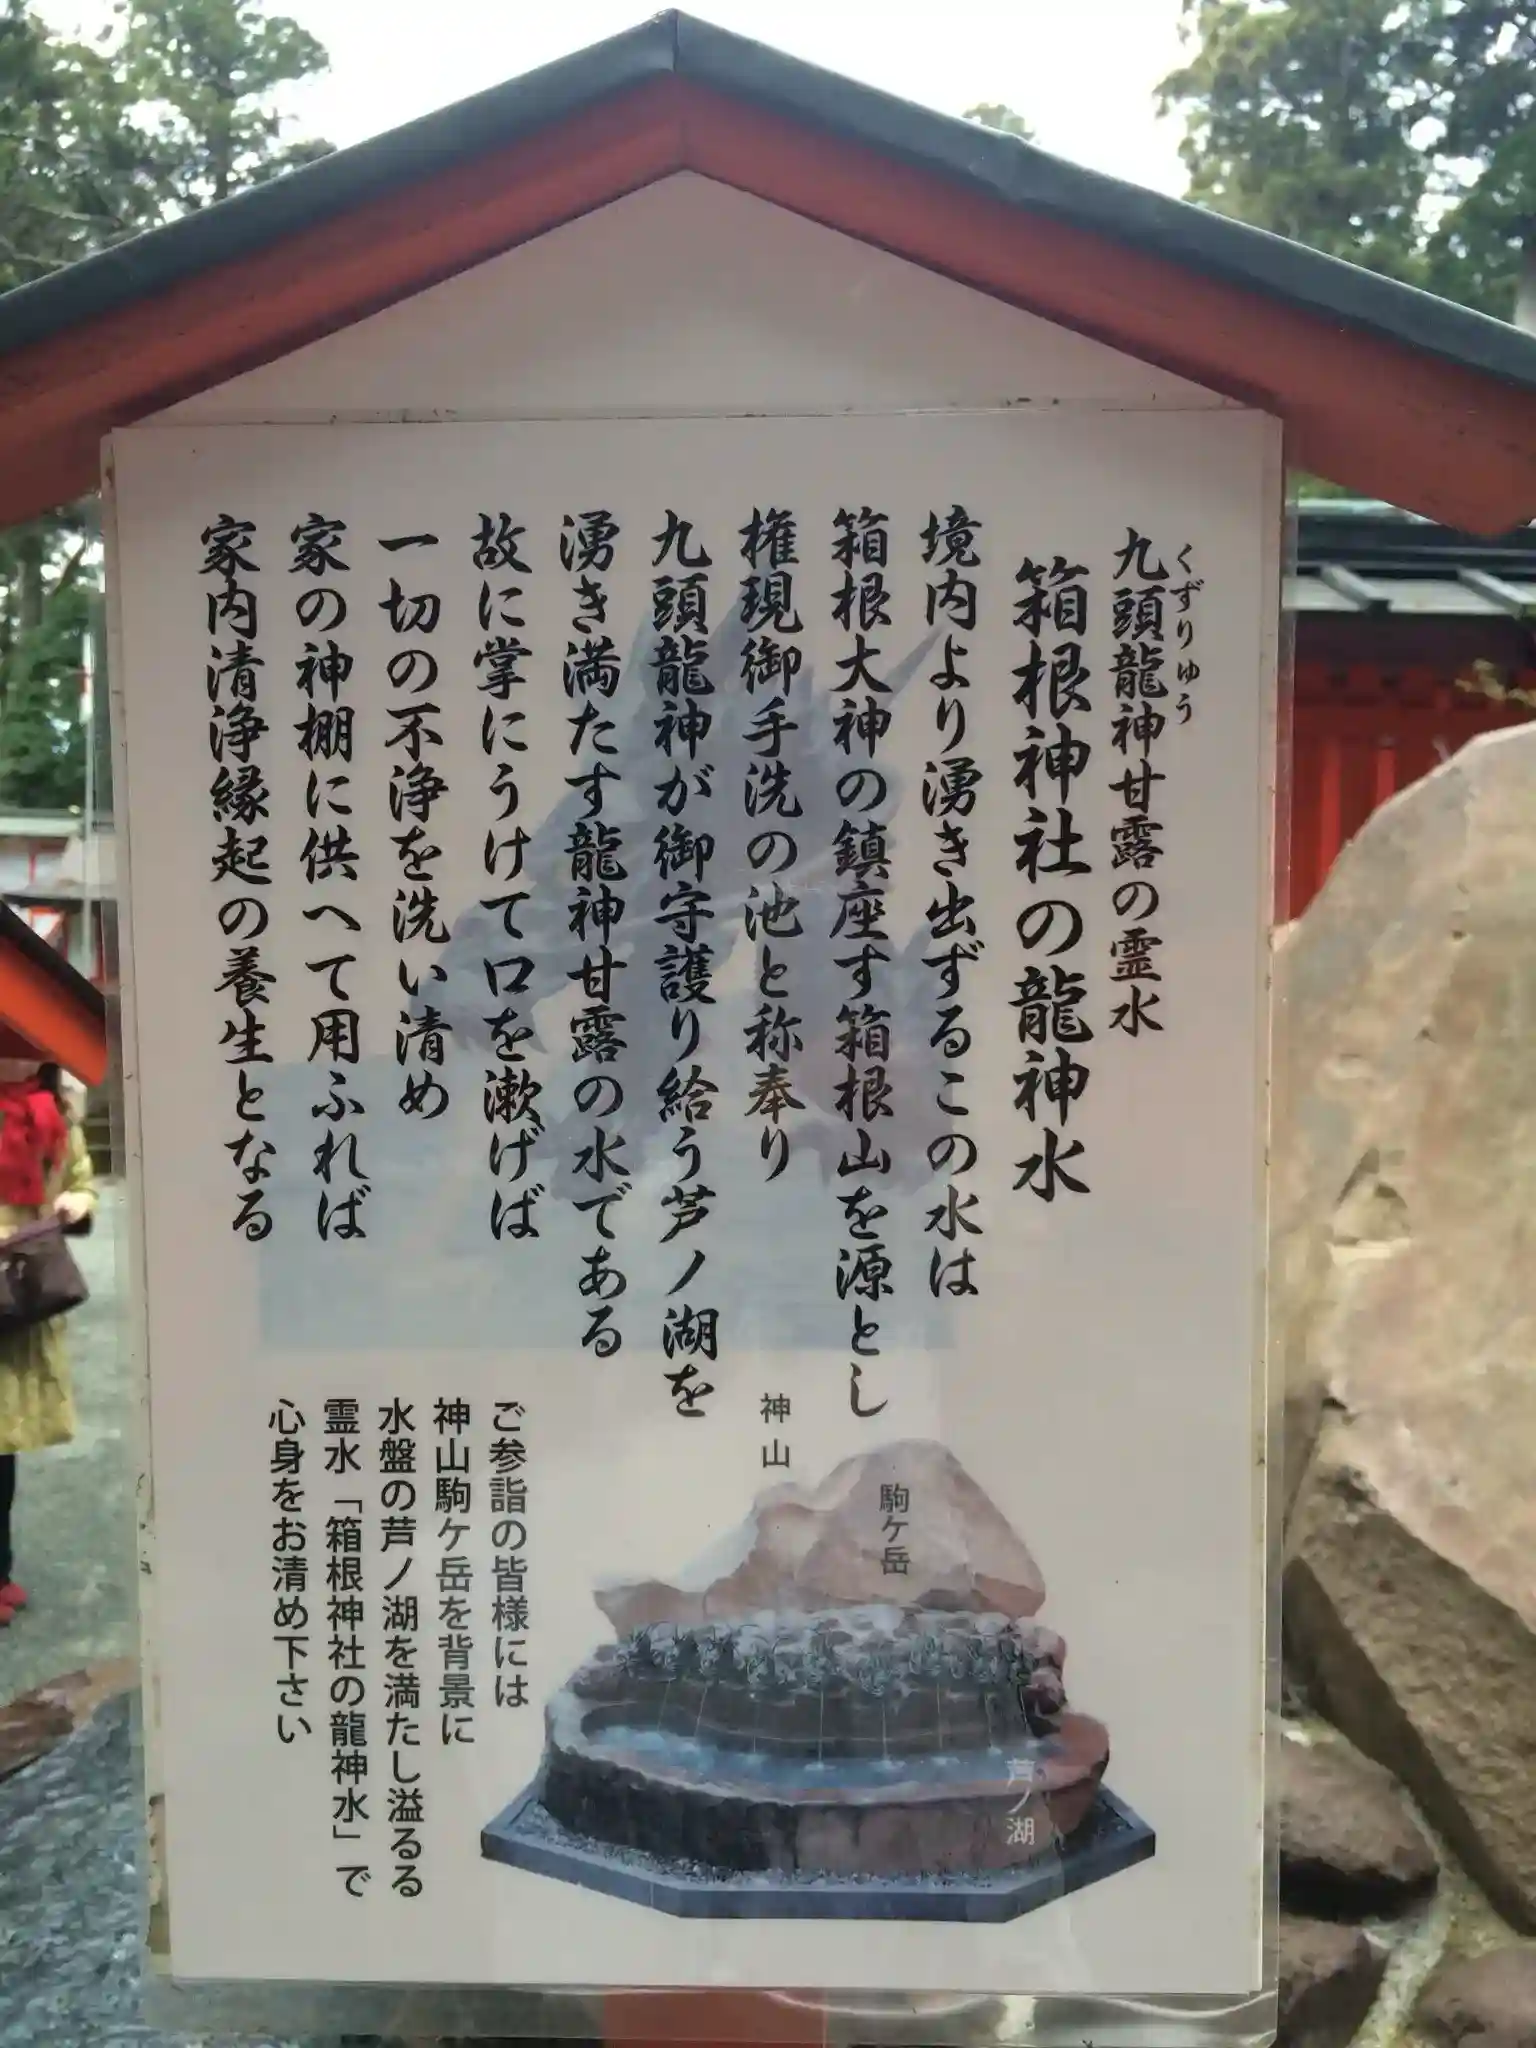 くずりゅう
九頭龍神甘露の霊水
箱根神社の龍神水
境内より湧き出ずるこの水は
箱根大神の鎮座す箱根山を源とし
権現御手洗の池と称奉り
九頭龍神が御守護り給う芦ノ湖を
湧き満たす龍神甘露の水である
故に掌にうけて口を漱げば
一切の不浄を洗い清め
家の神棚に供へて用ふれば
家内清浄縁起の養生となる
神山
駒ケ岳
芦ノ湖
ご参詣の皆様には
神山駒ケ岳を背景に
水盤の芦ノ湖を満たし溢るる
霊水「箱根神社の龍神水」で
心身をお清め下さい